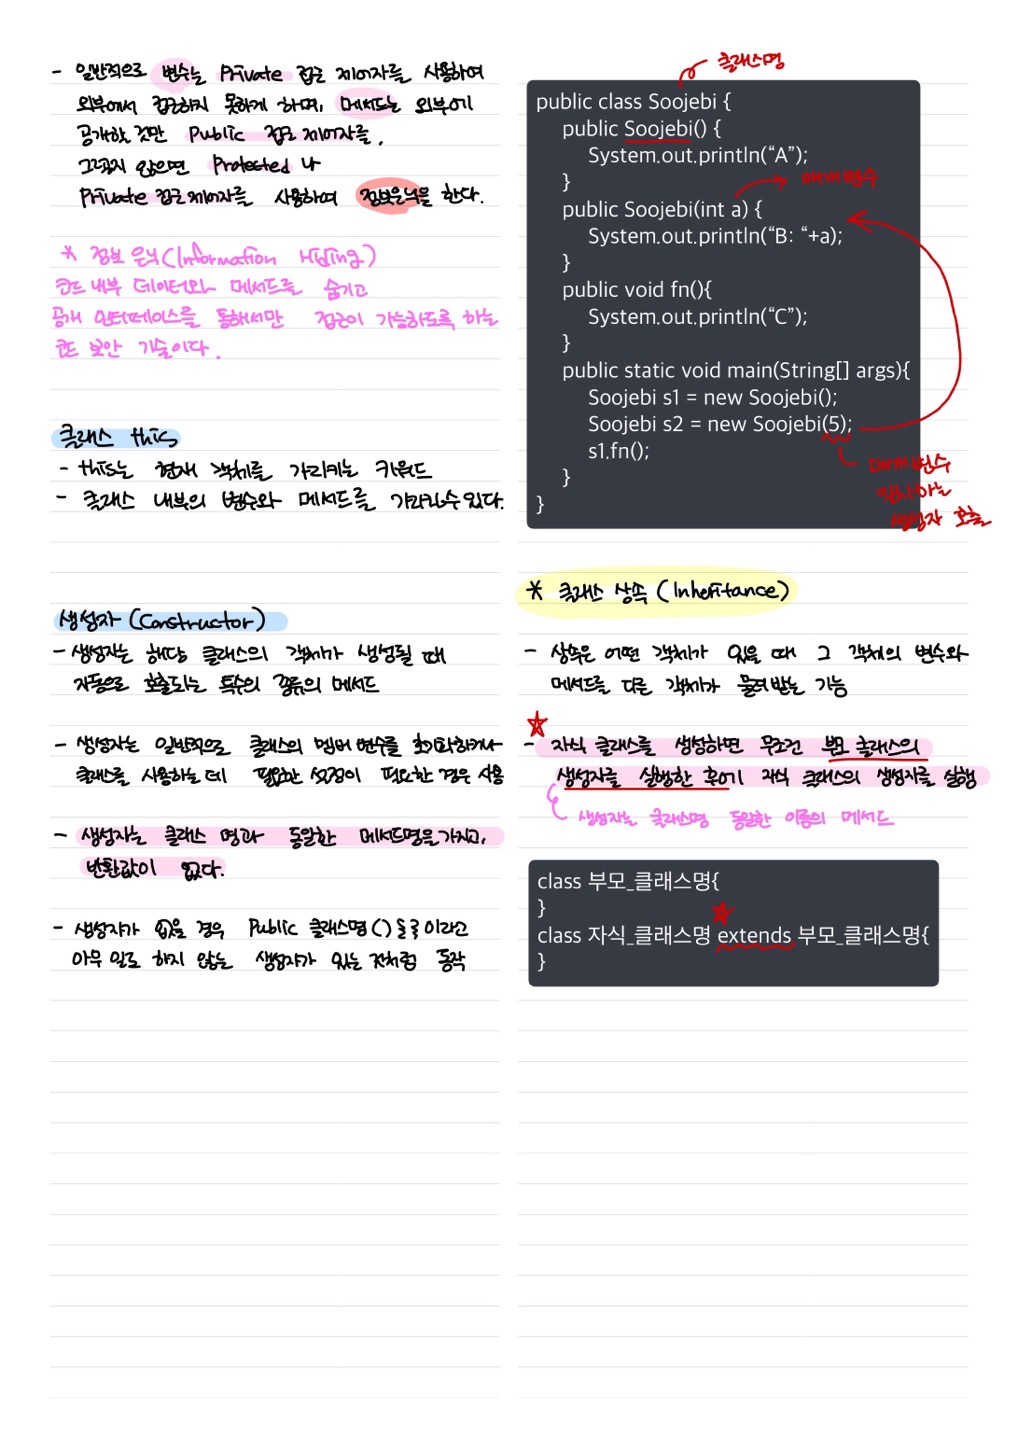 - 일반적으로 변수는 Private 접근 제어자를 사용하여
외부에서 접근하지 못하게 하며, 메서드는 외부에
공개할 것만 Public 접근 제어자를,
그렇지 않으면 Protected 나
Private 접근제어자를 사용하여 정보은닉을 한다.
* 정보 은닉(Information Hiding)
코드 내부 데이터와 메서드를 숨기고
공개 인터페이스를 통해서만 접근이 가능하도록 하는
코드 보안 기술이다.
클래스 this
- this는 현재 객체를 가리키는 키워드
- 클래스 내부의 변수와 메서드를 가리킬수있다.
생성자 (Constructor)
- 생성자는 해당 클래스의 객체가 생성될 때
자동으로 호출되는 특수의 종류의 메서드
- 생성자는 일반적으로 클래스의 멤버 변수를 초기화하거나
클래스를 사용하는데 필요한 설정이 필요한 경우 사용
- 생성자는 클래스 명과 동일한 메서드명을 가지고,
반환값이 없다.
- 생성자가 없을 경우 Public 클래스명(){}이라고
아무 일도 하지 않는 생성자가 있는 것처럼 동작
클래스명
public class Soojebi {
public Soojebi() {
System.out.println(“A”);
}
매개변수
public Soojebi(int a) {
System.out.println(“B: “+a);
}
public void fn(){
System.out.println(“C”);
}
public static void main(String[] args){
Soojebi s1 = new Soojebi();
Soojebi s2 = new Soojebi(5);
s1.fn();
}
}
매개변수
일치하는
생성자 호출
* 클래스 상속 (Inheritance)
- 상속은 어떤 객체가 있을 때 그 객체의 변수와
메서드를 다른 객체가 물려받는 기능
- 자식 클래스를 생성하면 무조건 부모 클래스의
생성자를 실행한 후에 자식 클래스의 생성자를 실행
생성자는 클래스명 동일한 이름의 메서드
class 부모_클래스명{
}
class 자식_클래스명 extends 부모_클래스명{
}